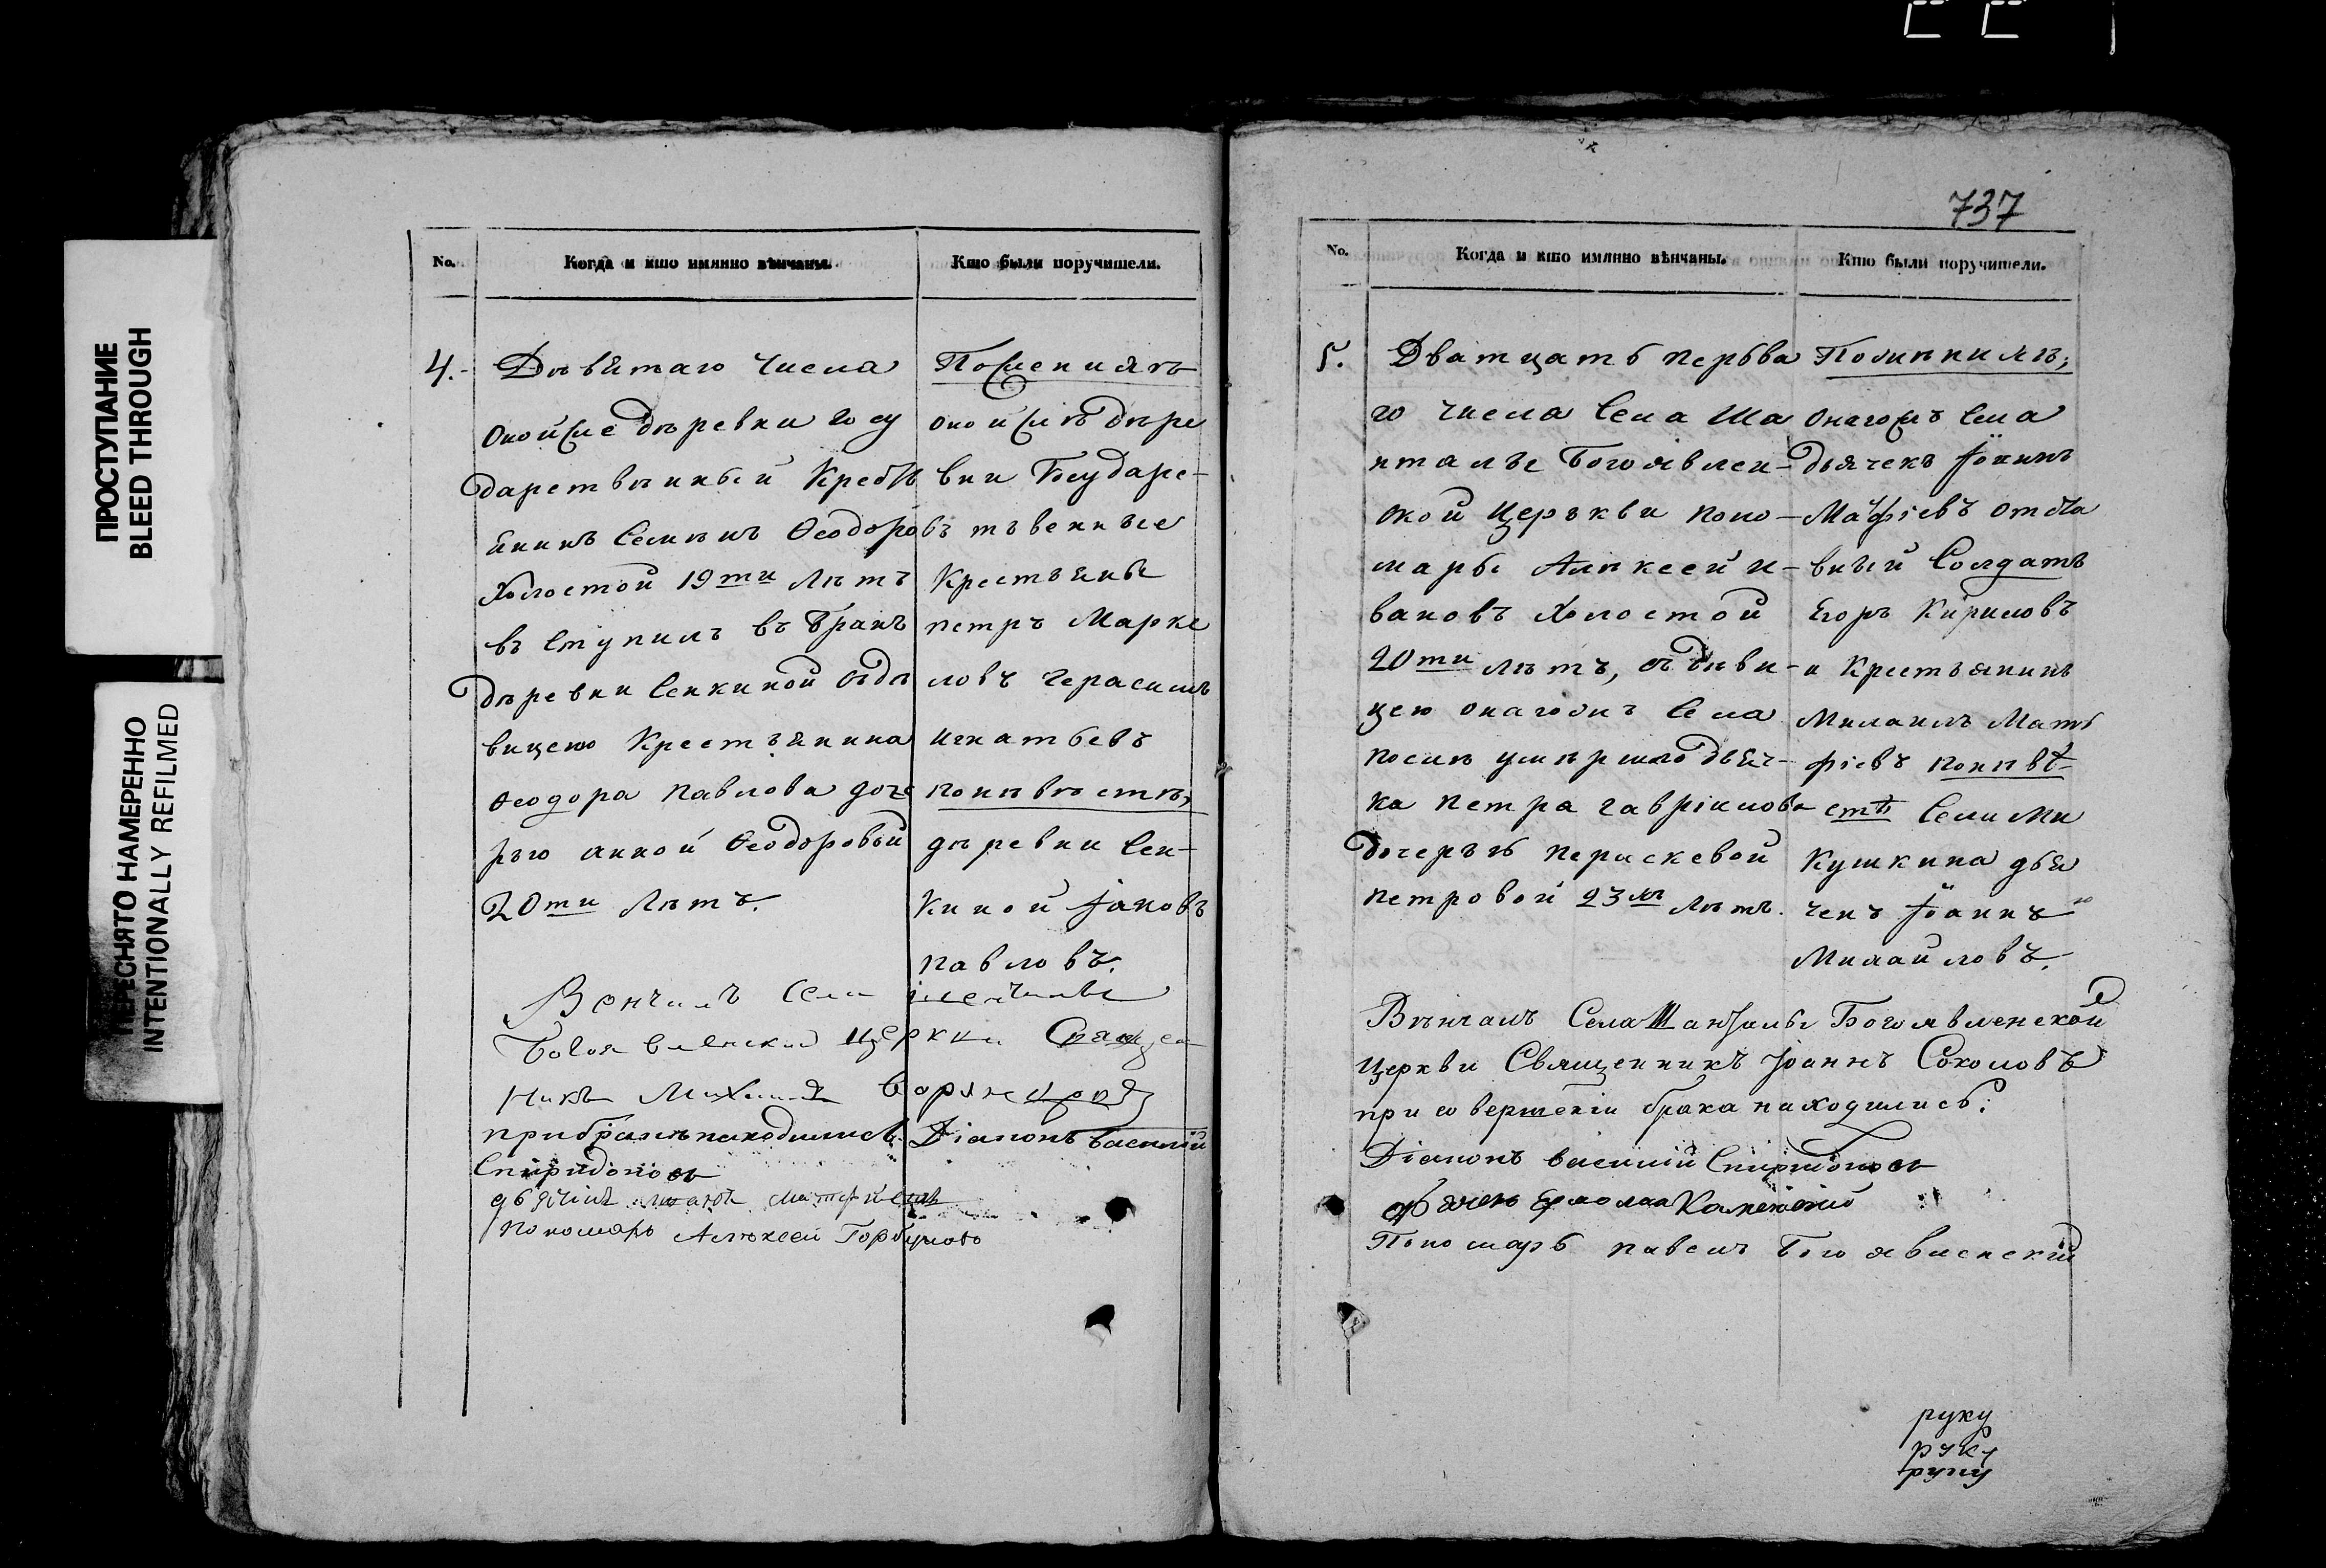 ПРОСТУПАНИЕ
BLEED THROUGH
ПЕРЕСНЯТО НАМЕРЕННО
INTENTIONALLY REFILMED
No.
Когда и кто имянно вѣнчаны.
Кто были поручители.
4.
Дѣвятаго числа
Окой же дѣревни госу
дарствѣнный Кресть
янинъ Семѣнъ Ѳеодоровъ
Холостой 19ти лѣтъ
въ ступилъ въ бракъ
дѣревни Сенкиной съ дѣ
вицею Крестъянина
Ѳеодора Павлова доче
рью анной Ѳеодоровый
20ти лѣтъ.
По женихѣ
оной же дѣре
вни Государс-
тъвенные
Крестъяны
петръ Марке
ловъ Герасимъ
игнатьевъ
по невѣстѣ,
дѣревни Сен-
киной Іаковъ
павловъ.
Вѣнчалъ Села
Богоявленской церкви Священ
никъ Михаилъ
при бракѣ находились Діаконъ василій
Спиридоновъ
дьячекъ
Пономарь Алѣксей Горбуновъ
737
No.
Когда и кто имянно вѣнчаны.
Кто были поручители.
5.
Дватцать перьва
го числа Села Ша
нталы Богоявлен-
ской Церькви поно-
марь Алѣксей и-
вановъ Холостой
20ти лѣтъ, съ дѣви-
цею онагожъ Села
после умѣршаго дьяч-
ка петра гавріилова
дочерью перасковой
петровой 23хъ лѣтъ.
По женихѣ,
онагожъ Села
дьячекъ Іоанъ
Мафіевъ отста
вный Солдатъ
Егоръ Кириловъ
и Крестъянинъ
Михаилъ Мат
фіевъ по невѣ-
стѣ Села Ми
кушкина дья
чекъ Іоаннъ
Михайловъ.
Вѣнчалъ Села Шанталы Богоявленской
Церкви Священникъ Іоаннъ Соколовъ
при совершеніи брака находились:
Діаконъ василій Спиридоновъ
дьячекъ Ермолай Каменскій
Пономарь павелъ Богоявленскій
руку
руку
руку